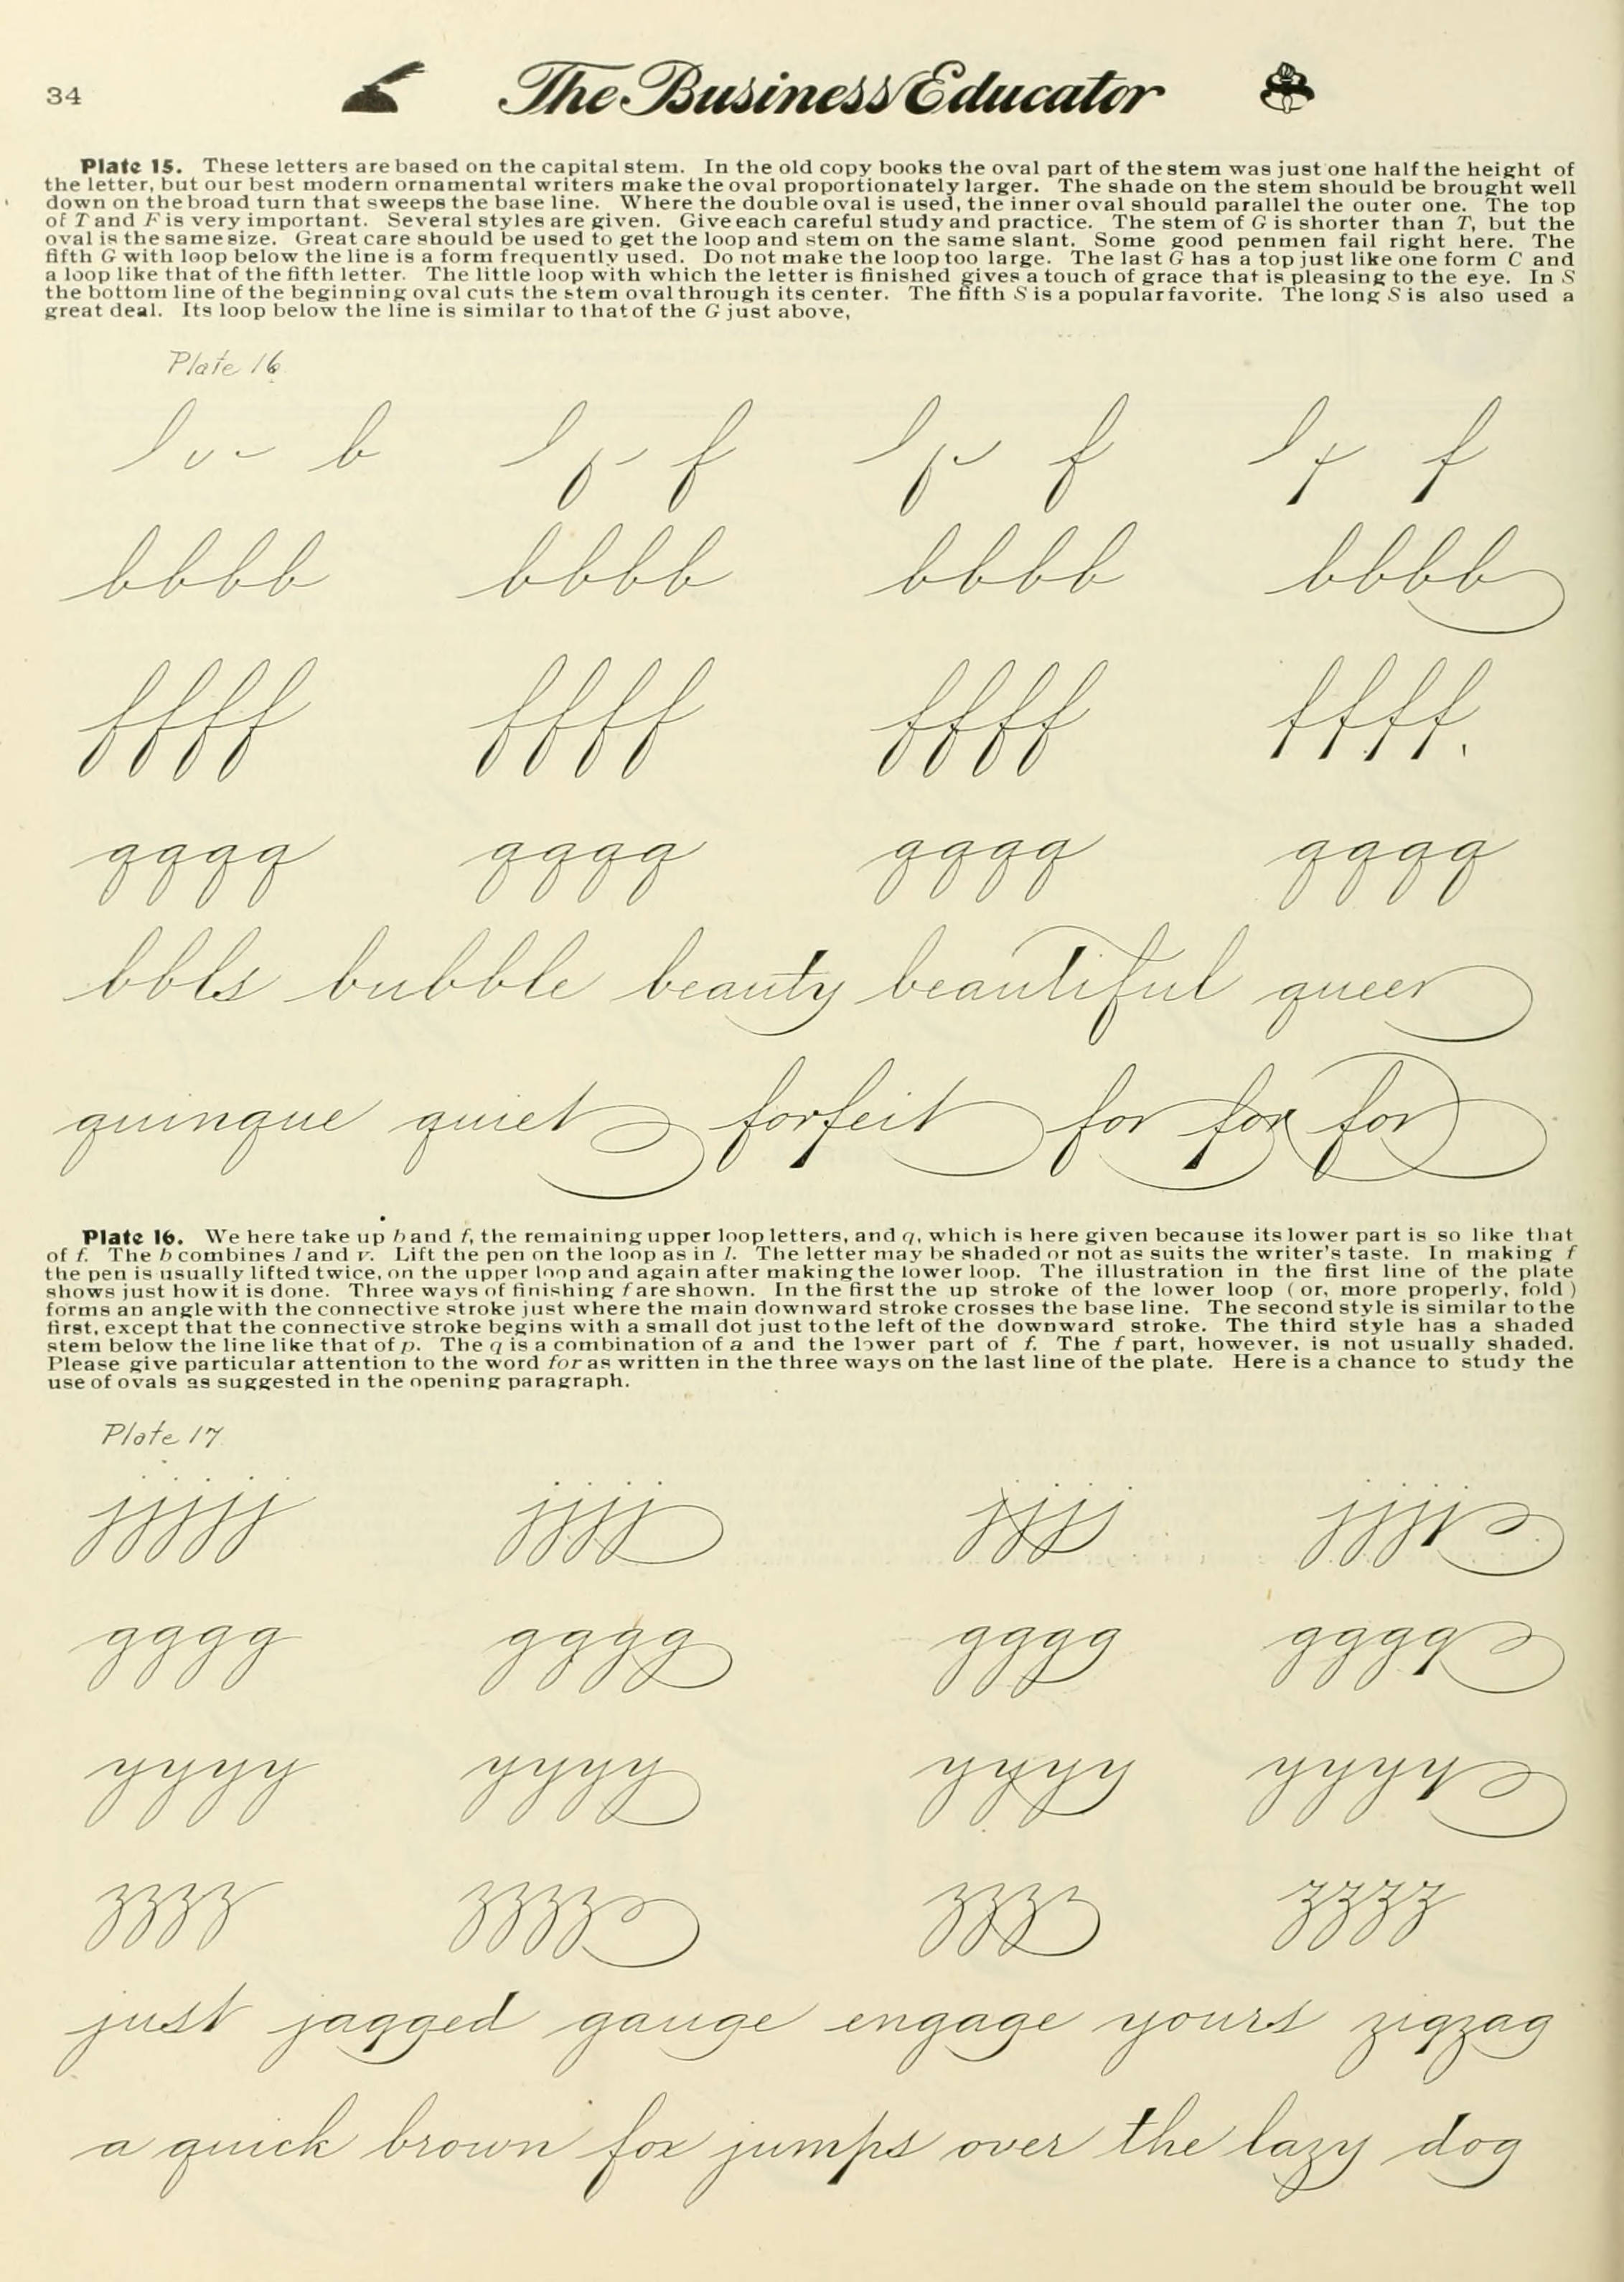 34 The Business Educator
Plate 15. These letters are based on the capital stem. In the old copy books the oval part of the stem was just one half the height of
the letter, but our best modern ornamental writers make the oval proportionately larger. The shade on the stem should be brought well
down on the broad turn that sweeps the base line. Where the double oval is used, the inner oval should parallel the outer one. The top
of T and F is very important. Several styles are given. Give each careful study and practice. The stem of G is shorter than T, but the
oval is the same size. Great care should be used to get the loop and stem on the same slant. Some good penmen fail right here. The
fifth G with loop below the line is a form frequently used. Do not make the loop too large. The last G has a top just like one form C and
a loop like that of the fifth letter. The little loop with which the letter is finished gives a touch of grace that is pleasing to the eye. In S
the bottom line of the beginning oval cuts the stem oval through its center. The fifth S is a popular favorite. The long S is also used a
great deal. Its loop below the line is similar to that of the G just above,
Plate 16
b f f f
bbbb bbbb bbbb bbbb
ffff ffff ffff ffff
qqqq qqqq qqqq qqqq
bbls bubble beauty beautiful queer
quinque quiet forfeit for for for
Plate 16. We here take up b and f, the remaining upper loop letters, and q, which is here given because its lower part is so like that
of f. The b combines l and v. Lift the pen on the loop as in l. The letter may be shaded or not as suits the writer's taste. In making f
the pen is usually lifted twice, on the upper loop and again after making the lower loop. The illustration in the first line of the plate
shows just how it is done. Three ways of finishing f are shown. In the first the up stroke of the lower loop (or, more properly, fold)
forms an angle with the connective stroke just where the main downward stroke crosses the base line. The second style is similar to the
first, except that the connective stroke begins with a small dot just to the left of the downward stroke. The third style has a shaded
stem below the line like that of p. The q is a combination of a and the lower part of f. The f part, however, is not usually shaded.
Please give particular attention to the word for as written in the three ways on the last line of the plate. Here is a chance to study the
use of ovals as suggested in the opening paragraph.
Plate 17
jjjjj jjjj jjjj jjjj
gggg gggg gggg gggg
yyyy yyyy yyyy yyyy
zzzz zzzz zzzz zzzz
just jagged gauge engage yours zigzag
a quick brown fox jumps over the lazy dog